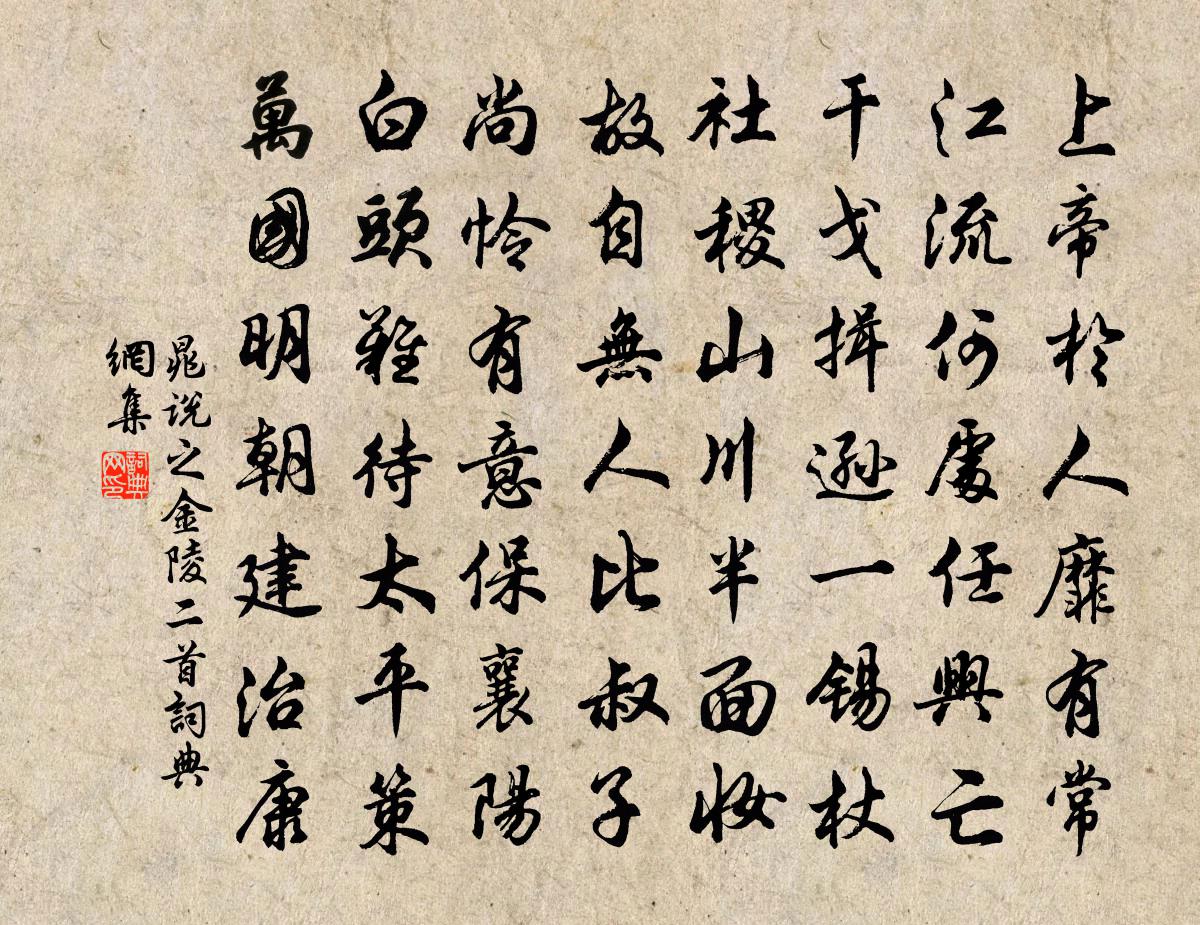 上帝於人靡有常
江流何處任興亡
干戈揖遜一錫杖
社稷山川半面妝
故自無人比叔子
尚怜有意保襄陽
白頭難待太平策
萬國明朝建治康
晁説之金陵二首詞典
網集
詞典
网印